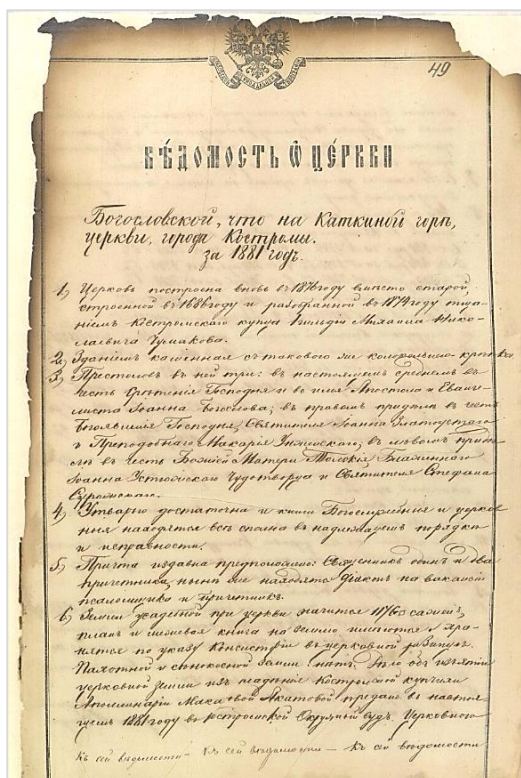 49
ВѢДОМОСТЬ Ѡ ЦЕ́РКВИ
Богословской, что на Каткиной горѣ,
церкви, города Костромы.
за 1881 годъ.
1, Церковь построена вновь въ 1876 году вмѣсто старой,
строенной въ 1686 году и разобранной въ 1874 году тща-
ніемъ Костромскаго купца Михаила Нико-
лаевича Чумакова.
2, Зданіемъ каменная съ таковою же колокольнею крѣпка.
3, Престоловъ въ ней три: въ настоящемъ среднемъ въ
честь Срѣтенія Господня и во имя Апостола и Еванге-
листа Іоанна Богослова; въ правомъ придѣлѣ въ честь
Богоявленія Господня, Святителя Іоанна Златоустаго
и Преподобнаго Макарія Унженскаго; въ лѣвомъ придѣ-
лѣ въ честь Божіей Матери Толгскія Блаженнаго
Іоанна Устюжскаго Чудотворца и Святителя Стефана
Сурожскаго.
4, Утварью достаточна и книги Богослужебныя и церков-
ныя находятся всѣ сполна въ надлежащемъ порядкѣ
и исправности.
5, Причта издавна предположено: Священникъ одинъ и два
причетника, нынѣ же находятся Діаконъ на вакансіи
псаломщика и причетникъ.
6, Земли усадебной при церкви значится 1176 саженъ,
планъ и межевая книга на землю имѣются и хра-
нятся по указу Консисторіи въ церковной ризницѣ.
Пахотной и сѣнокосной земли нѣтъ. Дѣло объ изъятіи
церковной земли изъ владѣнія Костромской купчихи
Аполлинаріи Акатовой предано въ настоя-
щемъ 1881 году въ Костромской Окружный судъ. Церковною
къ сей вѣдомости – къ сей вѣдомости – къ сей вѣдомости